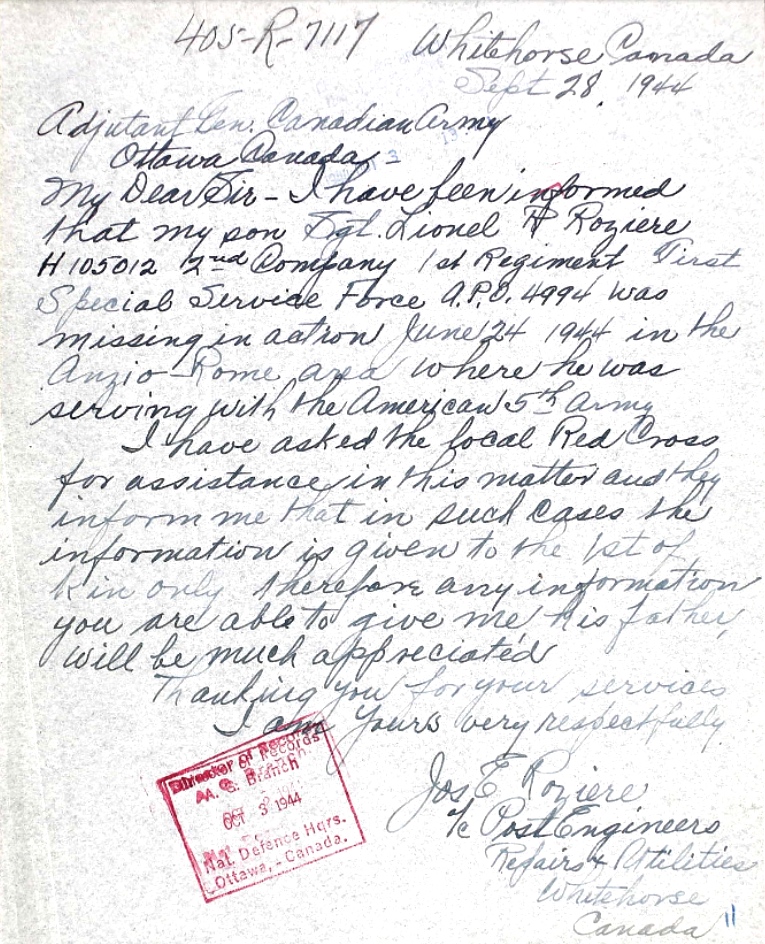 405-R-7117
Whitehorse Canada
Sept 28 1944
Adjutant Gen. Canadian Army
Ottawa Canada
My Dear Sir - I have been informed
that my son Sgt. Lionel R Roziere
H 105012 2nd Company 1st Regiment First
Special Service Force A.P.O. 4994 was
missing in action June 24 1944 in the
Anzio-Rome area where he was
serving with the American 5th Army
I have asked the local Red Cross
for assistance in this matter and they
inform me that in such cases the
information is given to the 1st of
Kin only therefore any information
you are able to give me his father,
will be much appreciated
Thanking you for your services
I am Yours very respectfully
Jos E Roziere
c/o Post Engineers
Repairs & Utilities
Whitehorse
Canada
11
Director of Records
A. G. Branch
OCT 3 1944
Nat. Defence Hqrs.
Ottawa, - Canada.